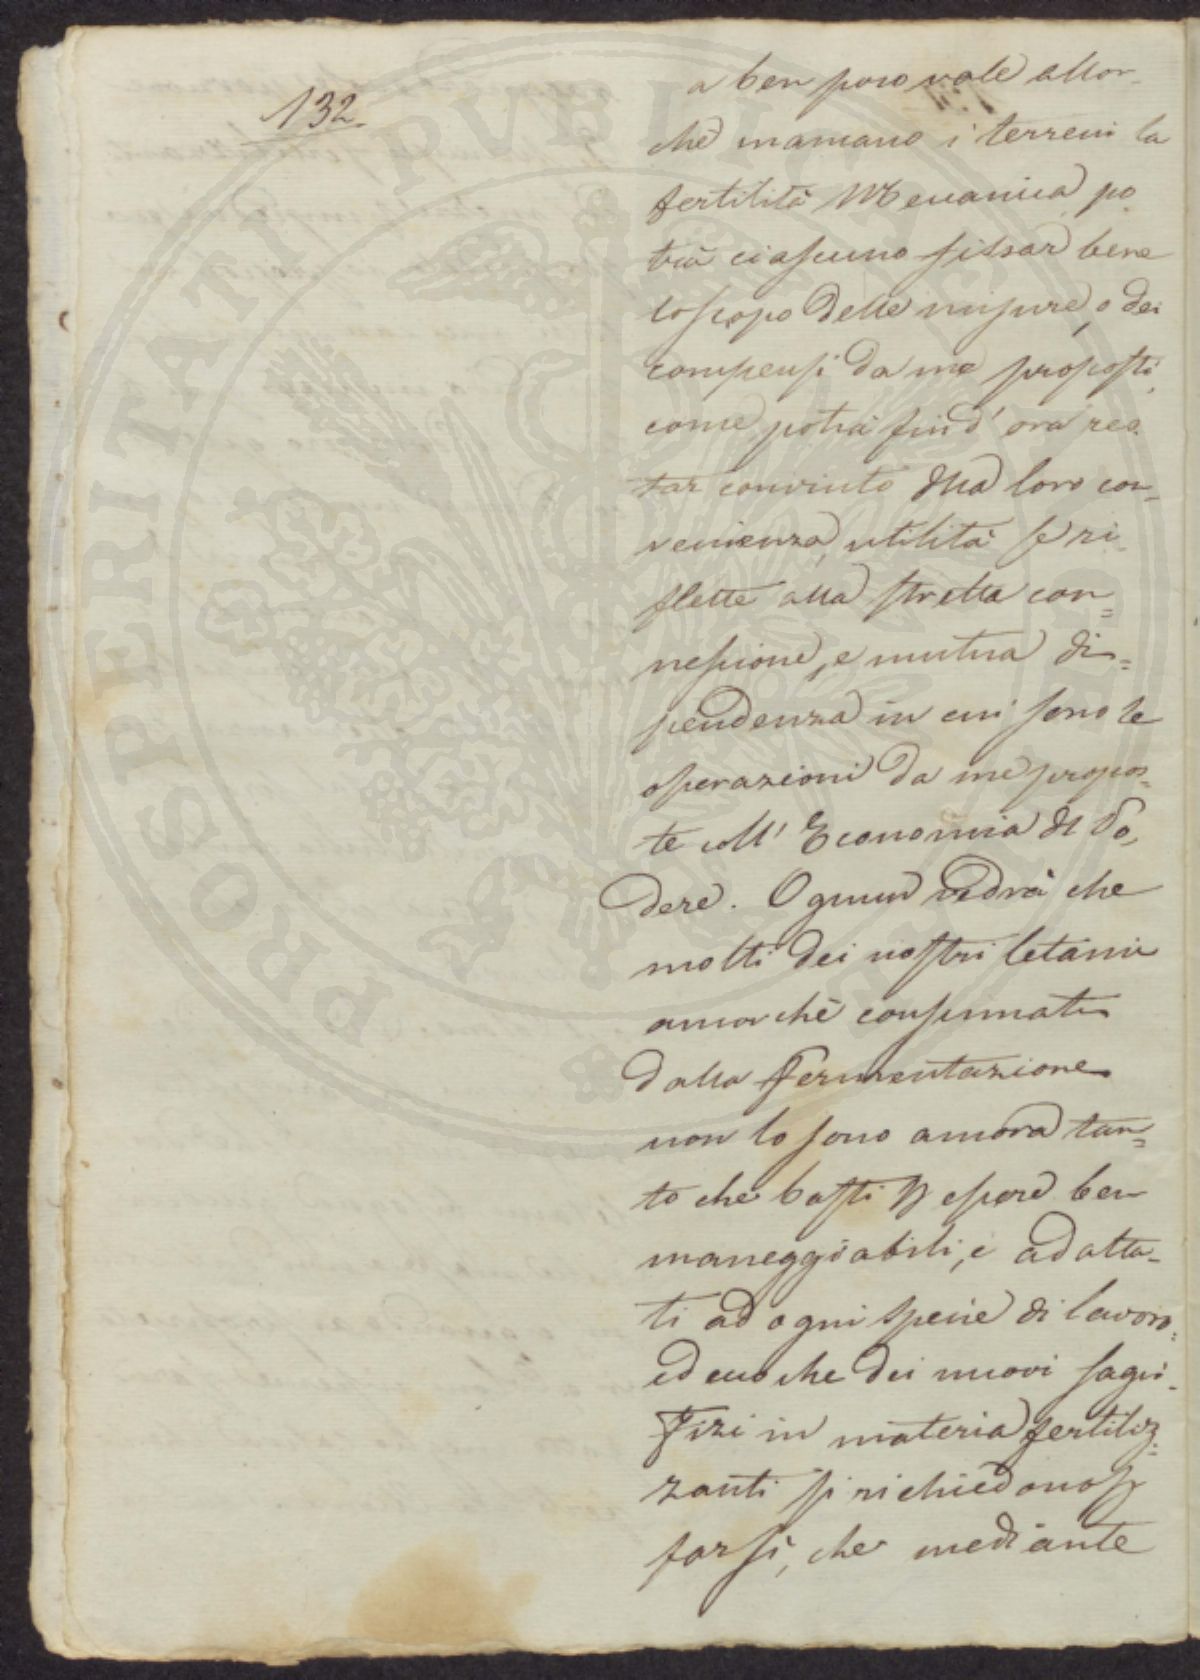 132
a ben poco vale allor-
chè mancano i terreni la
fertilità Meccanica, po
trà ciascuno fissar bene
lo scopo delle misure, o dei
compensi da me proposti,
come potrà fin d'ora res
tar convinto della loro con-
venienza, utilità se ri-
flette alla stretta con=
nessione, e mutua di=
pendenza in cui sono le
operazioni da me propos=
te coll' Economia del Po,
dere. Ognun vedrà che
molti dei nostri letami
ancorchè consumati
dalla Fermentazione
non lo sono ancora tan=
to che basti p essere ben
maneggiabili, e adatta-
ti ad ogni specie di lavoro,
ed ecco che dei nuovi sagri-
fizi in materia fertiliz=
zanti si richiedono p
farsi, che mediante
PROSPERITATI PVBLICAE